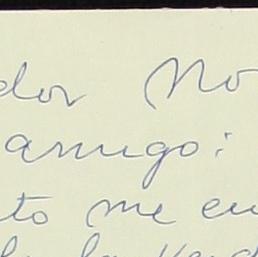 dor No
amigo:
to me en